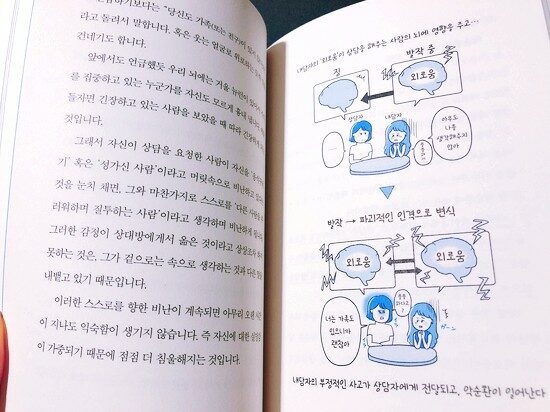 하기보다는 "당신도 가족(또는 친구)이 있
라고 돌려서 말합니다. 혹은 웃는 얼굴로 위로하는
건네기도 합니다.
앞에서도 언급했듯 우리 뇌에는 거울 뉴런이
를 집중하고 있는 누군가를 자신도 모르게 흉내
들자면 긴장하고 있는 사람을 보았을 때 따라 긴장하
것입니다.
그래서 자신이 상담을 요청한 사람이 자신을
기' 혹은 '성가신 사람'이라고 머릿속으로 비난하고
것을 눈치 채면, 그와 마찬가지로 스스로를 '다른 사람을
러워하며 질투하는 사람'이라고 생각하며 비난하게
그러한 감정이 상대방에게서 옮은 것이라고 상상조차
못하는 것은, 그가 겉으로는 속으로 생각하는 것과 다른
내뱉고 있기 때문입니다.
이러한 스스로를 향한 비난이 계속되면 아무리 오랜
이 지나도 익숙함이 생기지 않습니다. 즉 자신에 대한
이 가중되기 때문에 점점 더 침울해지는 것입니다.
내담자의 '외로움'이 상담을 해주는 사람의 뇌에 영향을 주고…
방작 중
짐
외로움
상담자
내담자
아무도
나를
생각해주지
않아
방작 → 파괴적인 인격으로 변신
외로움
외로움
너는 가족도
있으니까
괜찮아
내담자의 부정적인 사고가 상담자에게 전달되고, 악순환이 일어난다